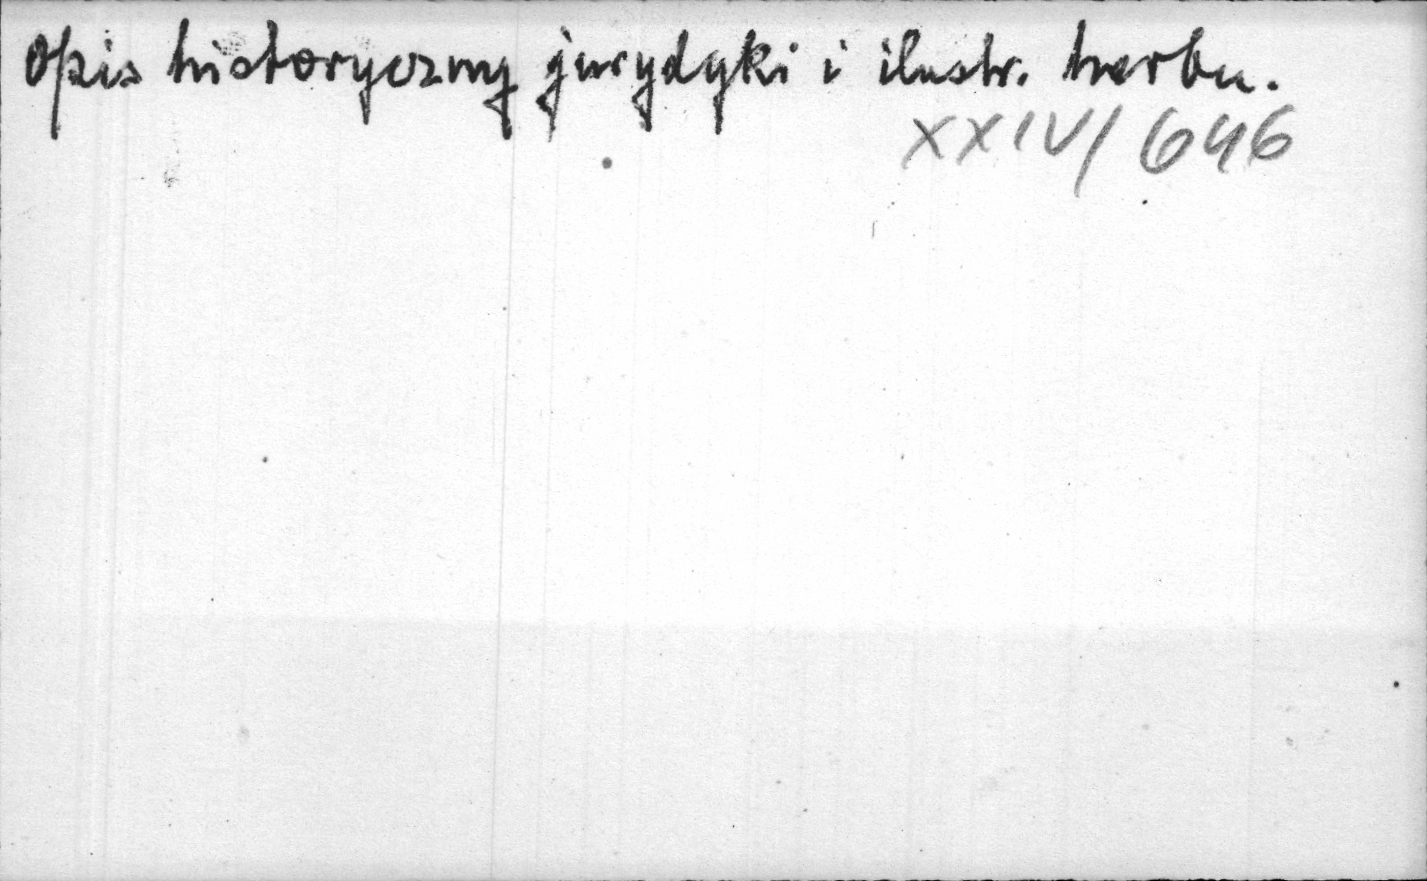 Opis historyczny jurydyki i ilustr. herbu.
XXIV/646